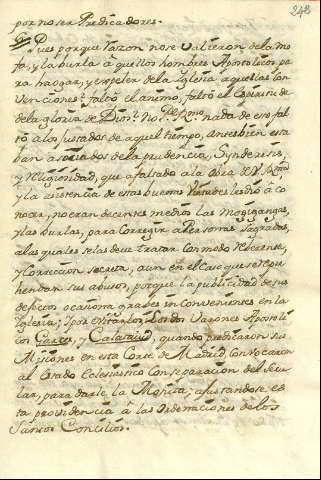 248
por no ser Predicadores.
Pues porque razon no se valieron de la mo-
fa, y la burla aquellos hombres Apostolicos pa-
ra haogar, y expeler de la Iglesia aquellas con-
venciones? faltó el animo, faltó el
de la gloria de Dios? No P.e nada de eso fal-
tó a los sustados de aquel tiempo, antes bien esta-
ban asociados de la prudencia, Synderesis,
y Religiosidad, que a faltado a la obra de V.
y la asistencia de estas buenas Virtudes les dió á co-
nocer, no eran decentes medios las Mogigangas,
y las burlas, para Corregir a Personas Sagradas,
a las quales se las deve tratar con modo reverente,
y Correccion secreta, aun en el Caso que se repre-
hendan sus abusos, porque la publicidad de sus
defectos ocasiona graves inconvenientes en la
Iglesia; y por evitarlos, los dos Varones Apostoli-
cos Garces, y Calatayud, quando predicaron sus
Misiones en esta Corte de Madrid, convocaron
al Estado Eclesiastico con separacion del Secu-
lar, para darle la Monita; ajustandose esta
providencia á las Ordenaciones de los
Santos Concilios.